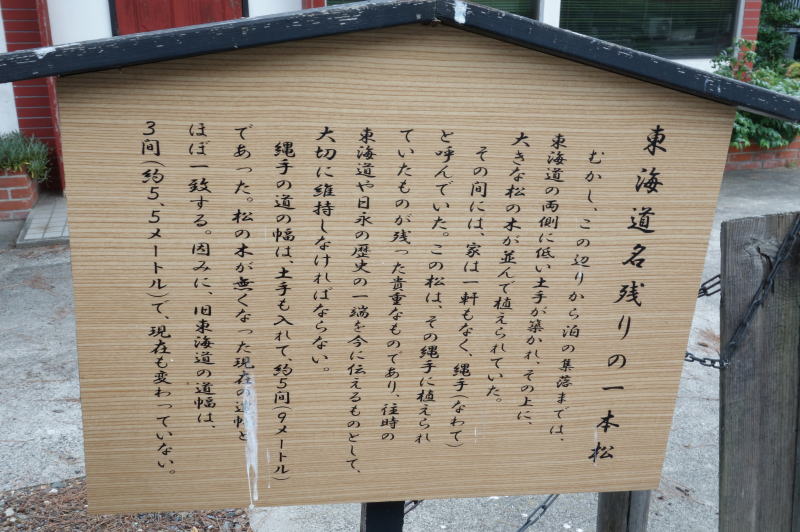 東海道名残りの一本松
むかし、この辺りから泊の集落までは、
東海道の両側に低い土手が築かれ、その上に、
大きな松の木が並んで植えられていた。
その間には、家は一軒もなく、縄手(なわて)
と呼んでいた。この松は、その縄手に植えられ
ていたものが残った貴重なものであり、往時の
東海道や日永の歴史の一端を今に伝えるものとして、
大切に維持しなければならない。
縄手の道の幅は、土手も入れて、約5間(9メートル)
であった。松の木が無くなった現在の道幅と
ほぼ一致する。因みに、旧東海道の道幅は、
3間(約5、5メートル)で、現在も変わっていない。